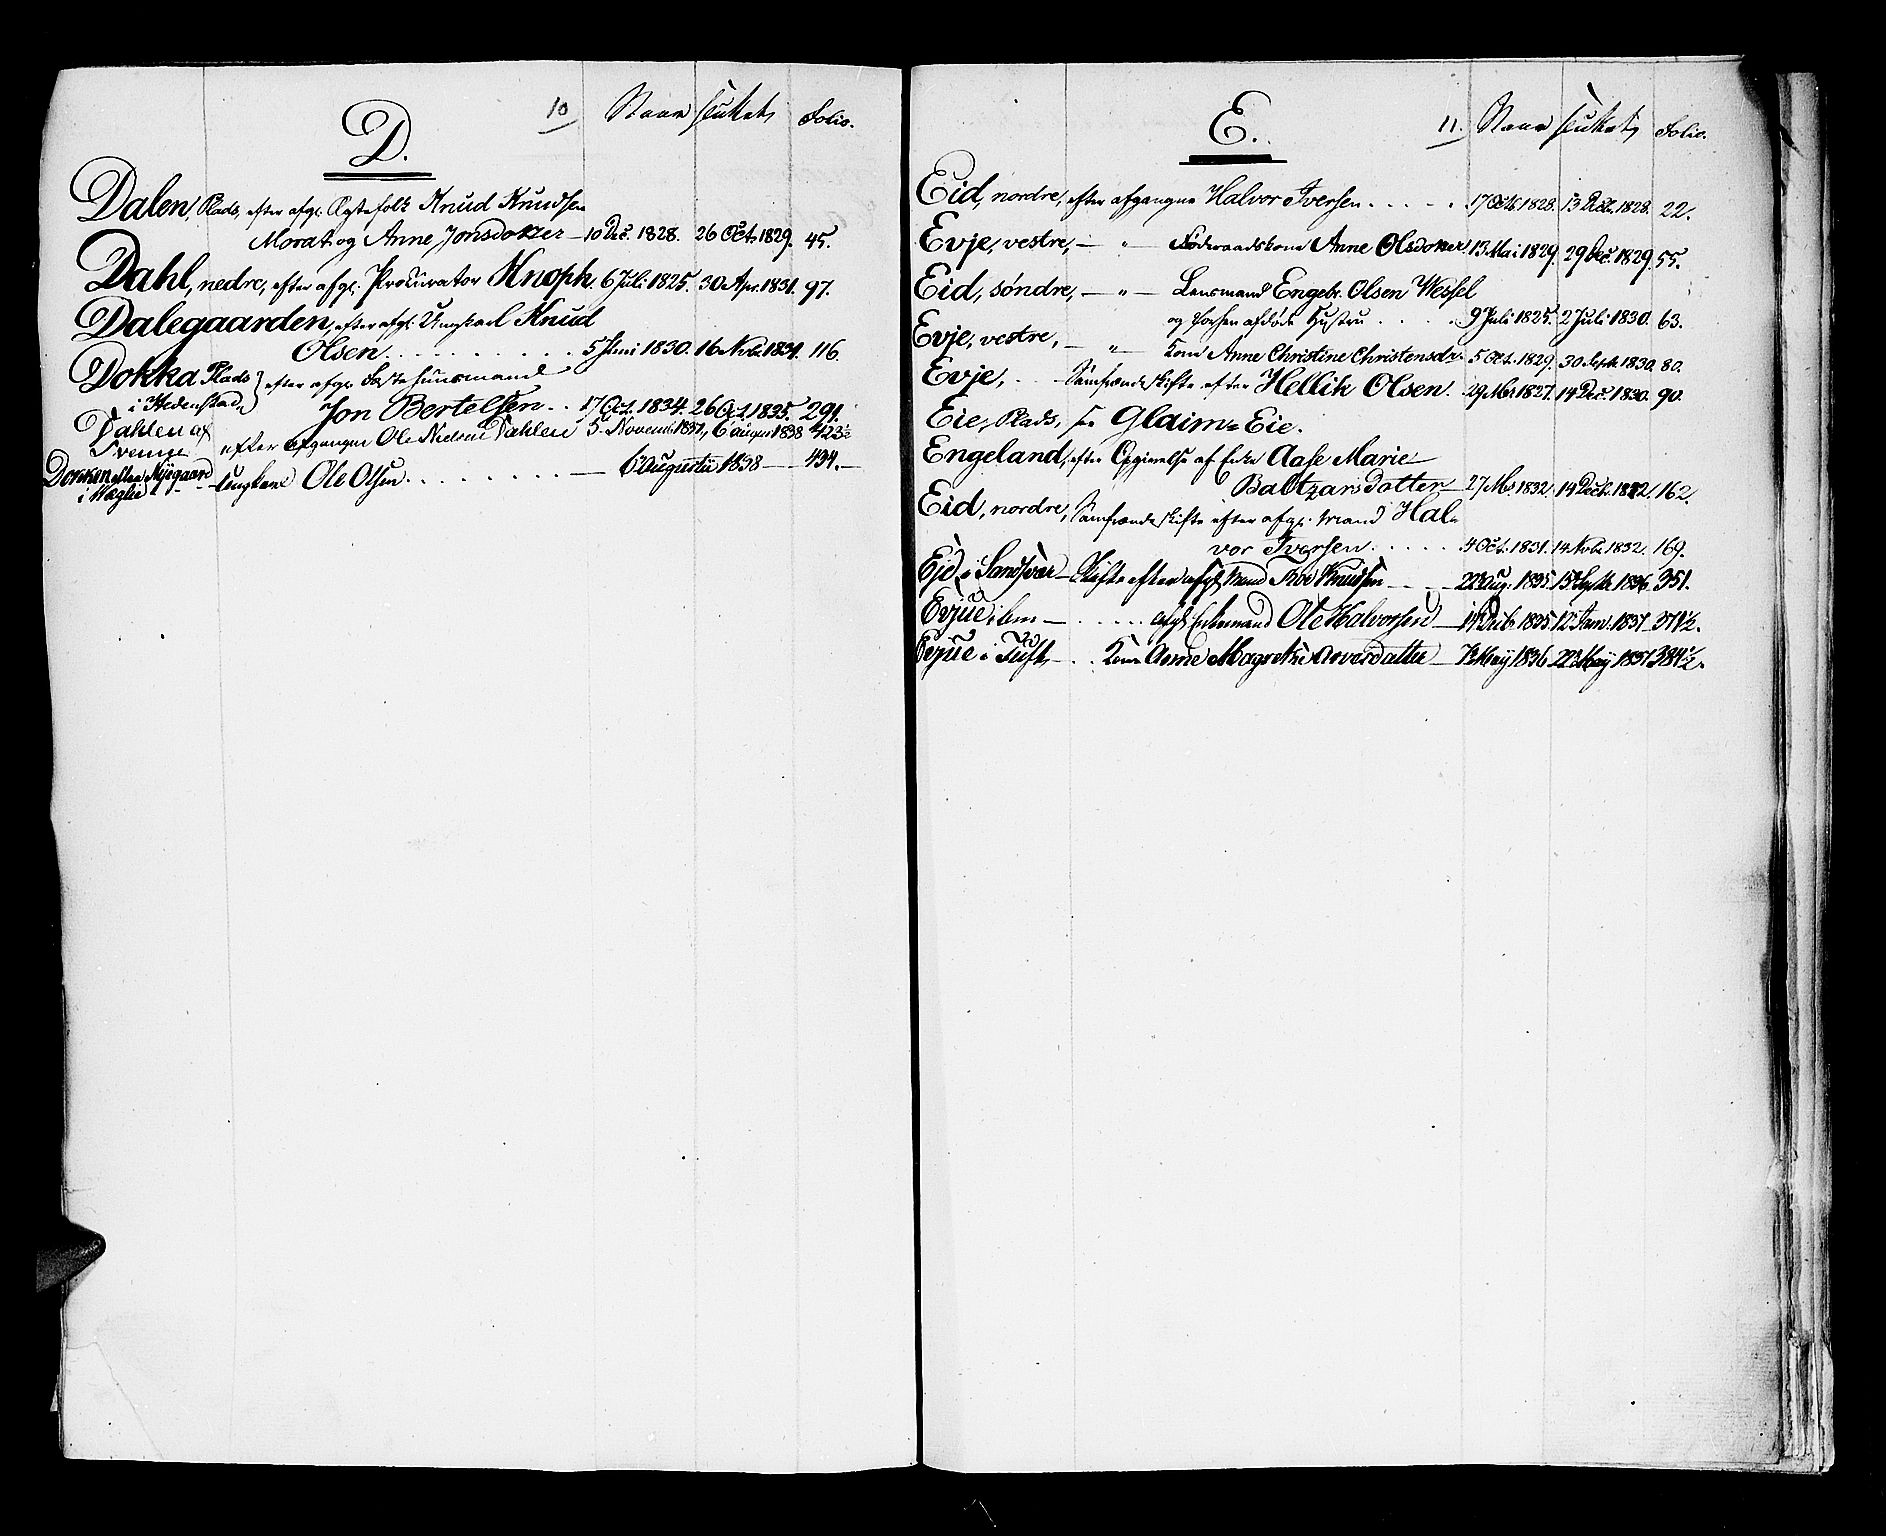 10 Naar sluttet Folio.
D.
Dalen, Plads, efter afgl. Ægtefolk Knud Knudsen
Morat og Anne Jonsdotter — 10 Dec. 1828. 26 Oct. 1829. 45.
Dahl, nedre, efter afgl. Procurator Knoph. 6 Juli 1825. 30 Apr. 1831. 97.
Dalegaarden, efter afgl. Ungkarl Knud
Olsen. . . . . . . . . . . 5 Juni 1830. 16 Nvbr. 1831. 116.
Dokka Plads } efter afgl. Huusmand
i Hedenstad
Jon Bertelsen. . . 17 Oct. 1834. 26 Oct. 1835. 291.
Dahlen af efter afgangne Ole Nielsen Dahlen 5 Novemb. 1837, 6 august 1838 423½
Dokken eller Myegaard
Ungkarl Ole Olsen. . . . . . . . . — 6 Augusti 1838 — 434. —
11. Naar sluttet Folio.
E.
Eid, nordre, efter afgangne Halvor Iversen. . . . . 17 Octb. 1828. 13 Dcbr. 1828. 22.
Evje, vestre, — " — Føderaadskone Anne Olsdotter. 13 Mai 1829. 29 Dec. 1829. 55.
Eid, søndre, — " — Lensmand Engebr. Olsen Wessel
og forhen afdøde Hustru . . . . 9 Juli 1825. 2 Juli 1830. 63.
Evje, vestre, — " — Kone Anne Christine Christensdr. 5 Oct. 1829. 30 Septb. 1830. 80.
Evje, . . Samfrændeskifte efter Hellik Olsen. 29 1827. 14 Dec. 1830. 90.
Eie, Plads, se Glaim=Eie.
Engeland, efter Opgivelse af Enke Aase Marie
Baltzarsdotter — 27 1832. 14 Decb. 1832. 162.
Eid, nordre, Samfrændeskifte efter afgl. Mand Hal-
vor Iversen. . . . . . 4 Oct. 1831. 14 Nvbr. 1832. 169.
Eje i Sandsvær — Skifte efter afgl. Mand Knudsen — 22 Aug. 1835 15 Septb. 1836 351.
Evjue — . . . . . afgl. Enkemand Ole Halvorsen — 14 1835 12 Janv. 1837 371½.
Evjue i Tuft — . . Kone Anne Magrethe — 12 May 1836 22 May 1837 384½.